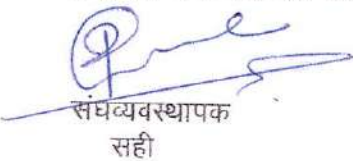 संघव्यवस्थापक
सही